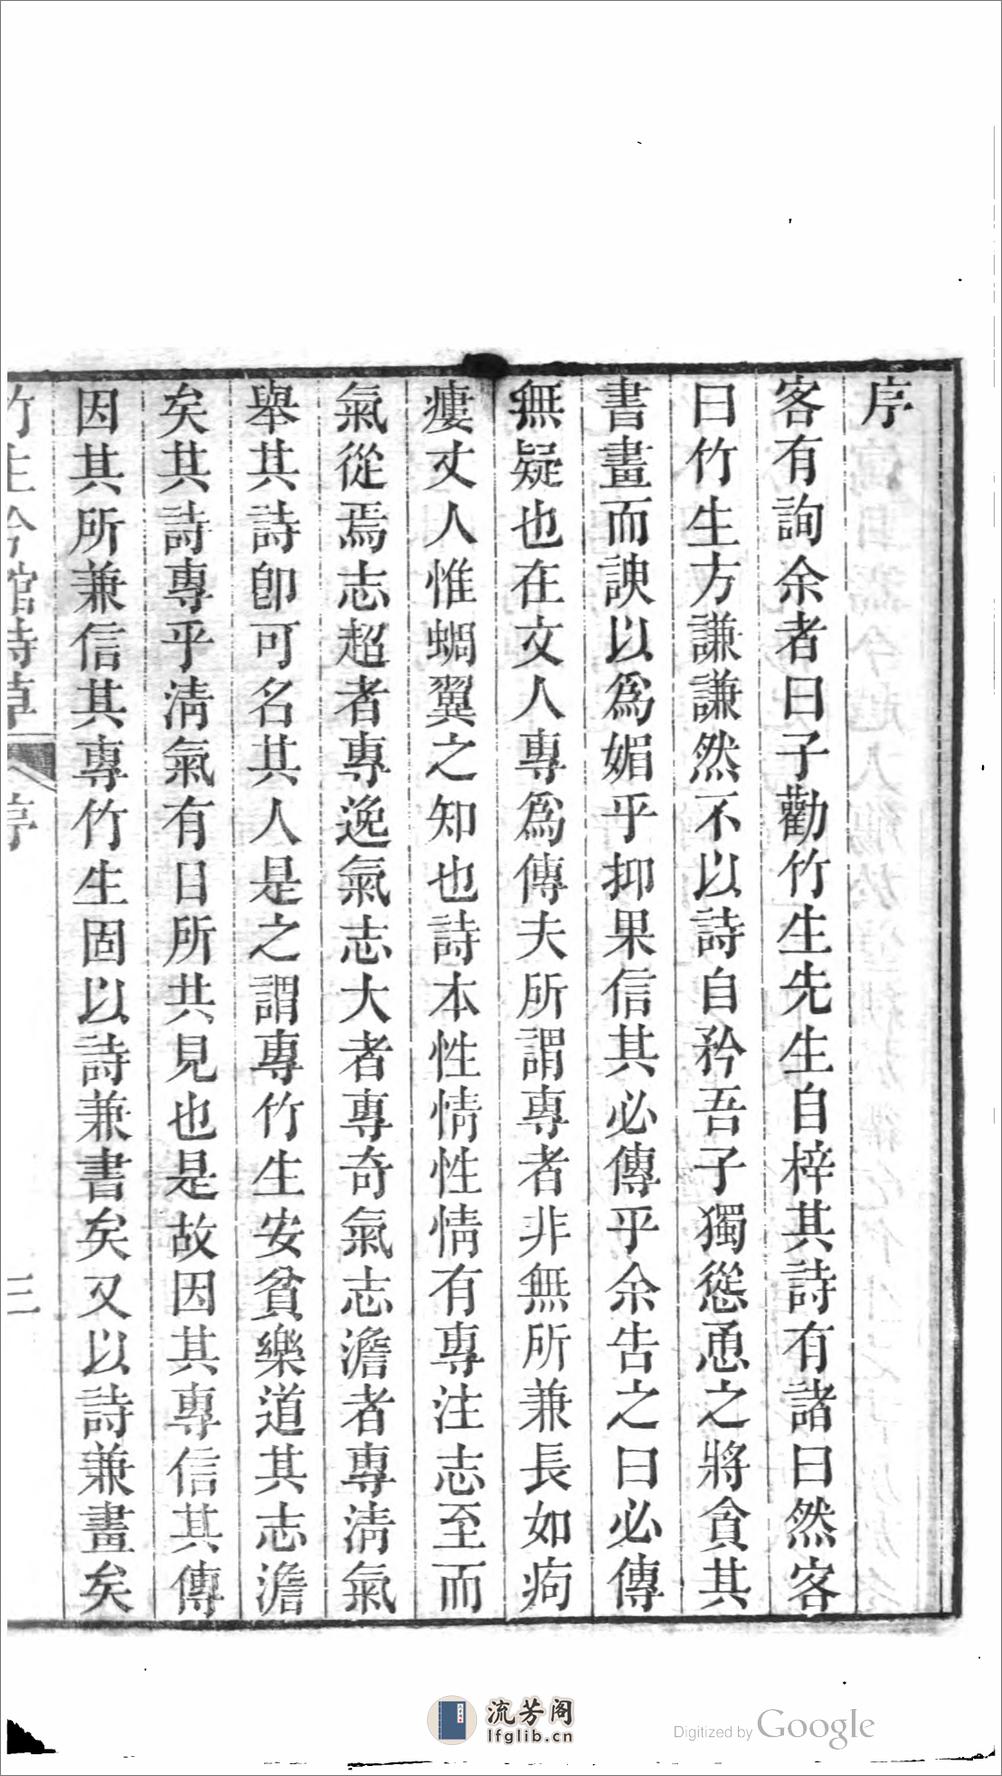 序
客有詢余者曰子勸竹生先生自梓其詩有諸曰然客
曰竹生方謙謙然不以詩自矜吾子獨慫恿之將貪其
書畫而諛以爲媚乎抑果信其必傳乎余告之曰必傳
無疑也在文人專爲傳夫所謂專者非無所兼長如痀
瘻丈人惟蜩翼之知也詩本性情性情有專注志至而
氣從焉志超者專逸氣志大者專奇氣志澹者專淸氣
舉其詩卽可名其人是之謂專竹生安貧樂道其志澹
矣其詩專乎淸氣有目所共見也是故因其專信其傳
因其所兼信其專竹生固以詩兼書矣又以詩兼畫矣
竹生吟館詩草 序 三
流芳阁
lfglib.cn
Digitized by Google